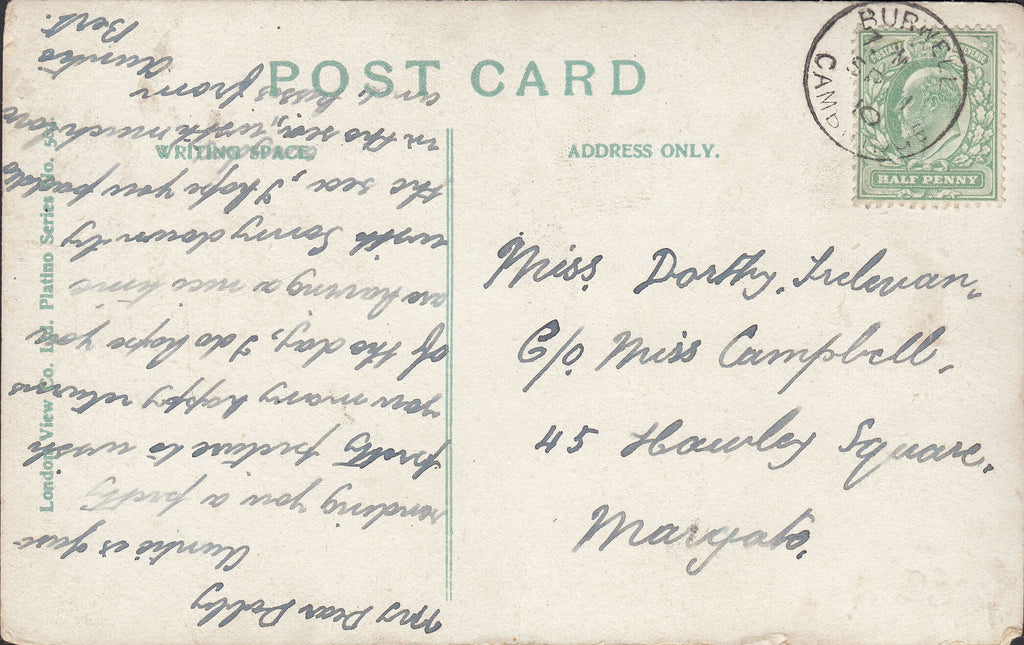 POST CARD
WRITING SPACE.
ADDRESS ONLY.
BURWELL
CAMBRI
HALF PENNY
Miss Dorthy. Trelevan,
C/o Miss Campbell,
45 Hawley Square,
Margate,
My Dear Dolly
Auntie is just
sending you a pretty
pretty picture to wish
you many happy returns
Of the day, I do hope you
are having a nice time
with Sonny down by
the sea, I hope you paddle
in the sea, with much love
and kisses from
Auntie
Bert.
London View Co. Ltd. Platino Series No.